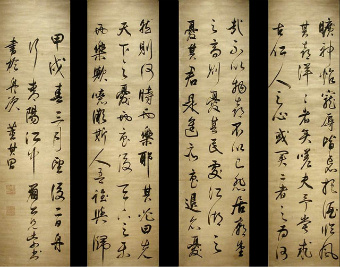 曠神怡寵辱皆忘把酒臨風
其喜洋洋者矣嗟夫予嘗求
古仁人之心或異二者之為何
哉不以物喜不以己悲居廟堂
之高則憂其民處江湖之
憂其君是進亦憂退亦憂
然則何時而樂耶其必曰先
天下之憂而憂後天下之樂
而樂歟噫微斯人吾誰與歸
甲戌春三月望後二日舟
行陽江中
書於舟次董其昌